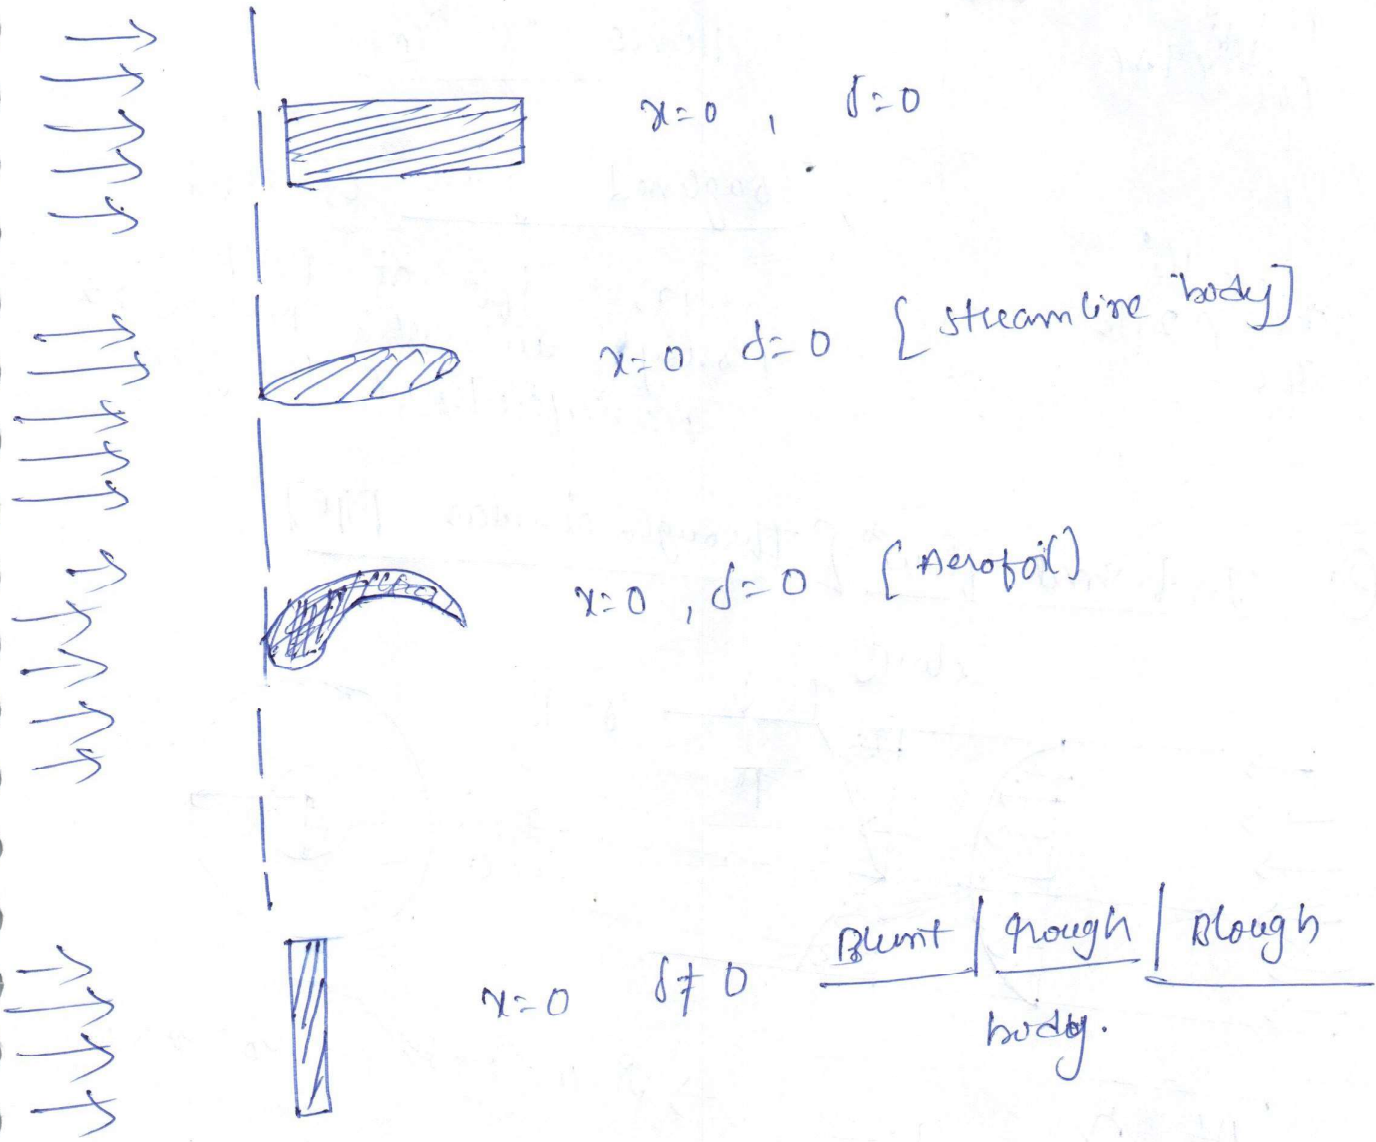 x=0 , δ=0
x=0 δ=0 [streamline body]
x=0 , δ=0 [Aerofoil]
x=0 δ≠0 Blunt | rough | Blough
body.